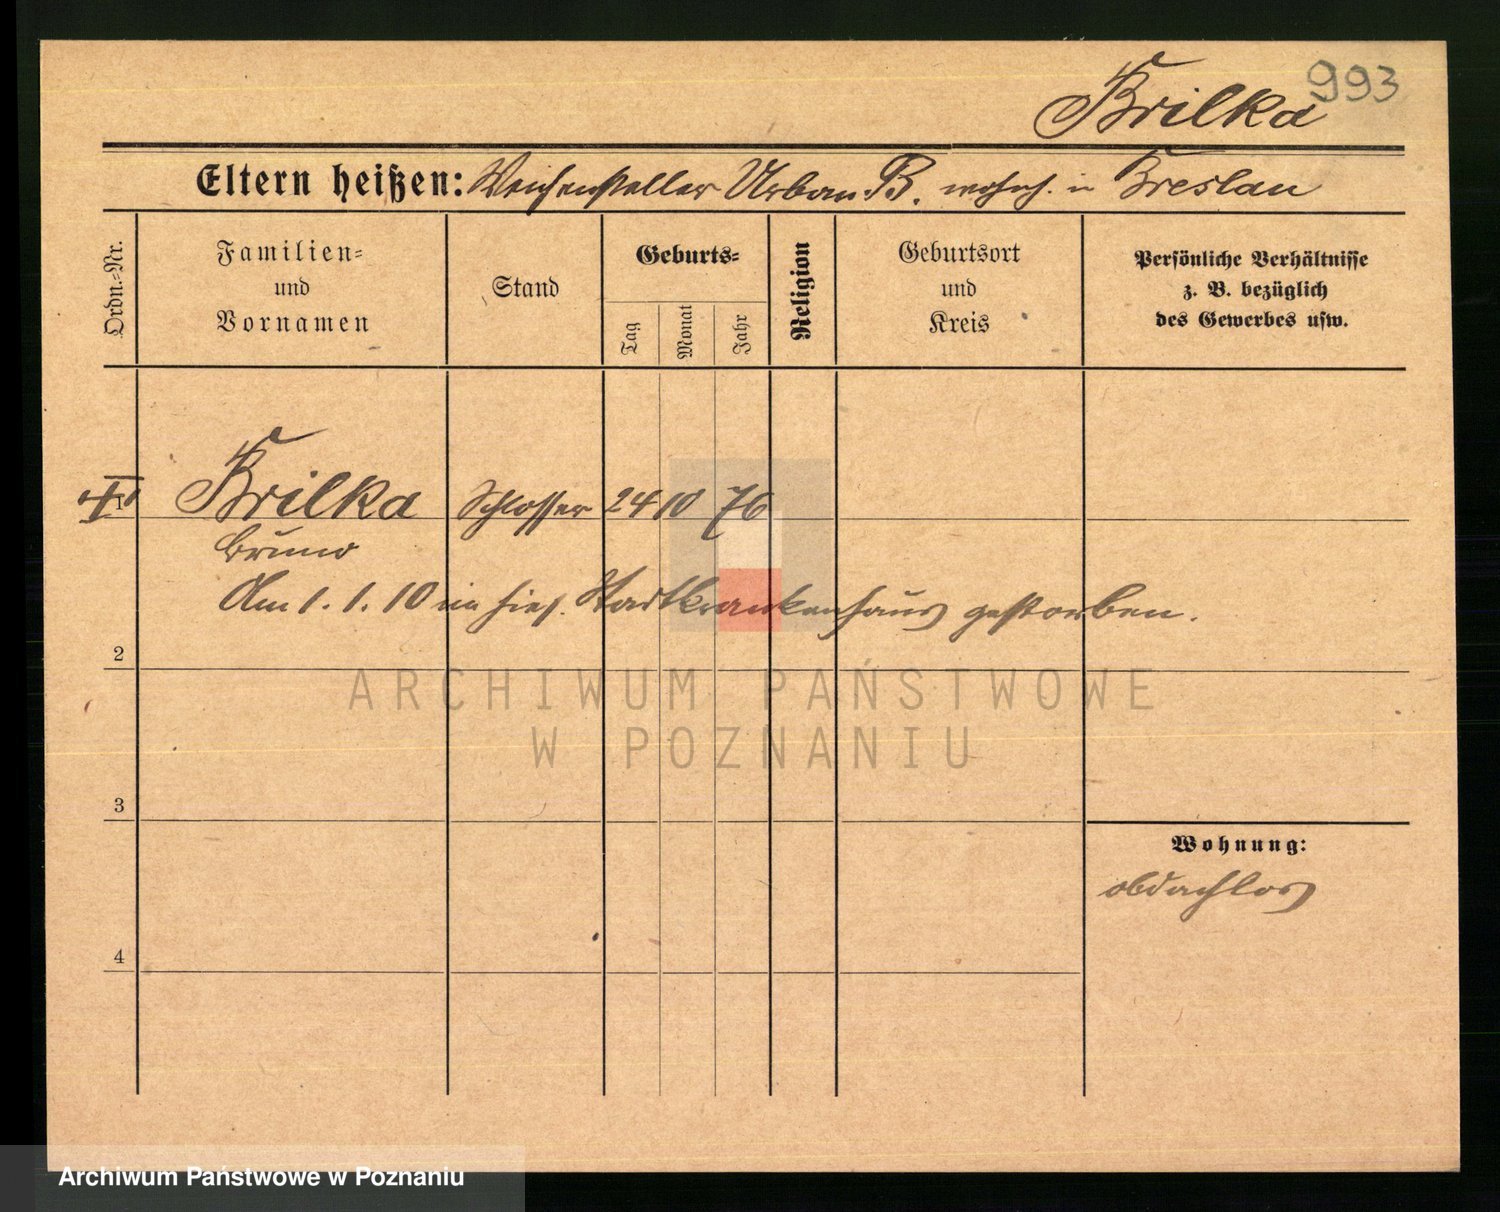 993
Brilka
Eltern heißen: Weichensteller Urban B. wohnh. in Breslau
Ordn.-Nr.
Familien- und Vornamen
Stand
Geburts-
Tag
Monat
Jahr
Religion
Geburtsort und Kreis
Persönliche Verhältnisse
z. B. bezüglich
des Gewerbes usw.
1 Brilka Schlosser 24 10 76
Bruno
Am 1. 1. 10 im hies. Stadtkrankenhaus gestorben.
2
ARCHIWUM PAŃSTWOWE
W POZNANIU
3
Wohnung:
obdachlos
4
Archiwum Państwowe w Poznaniu